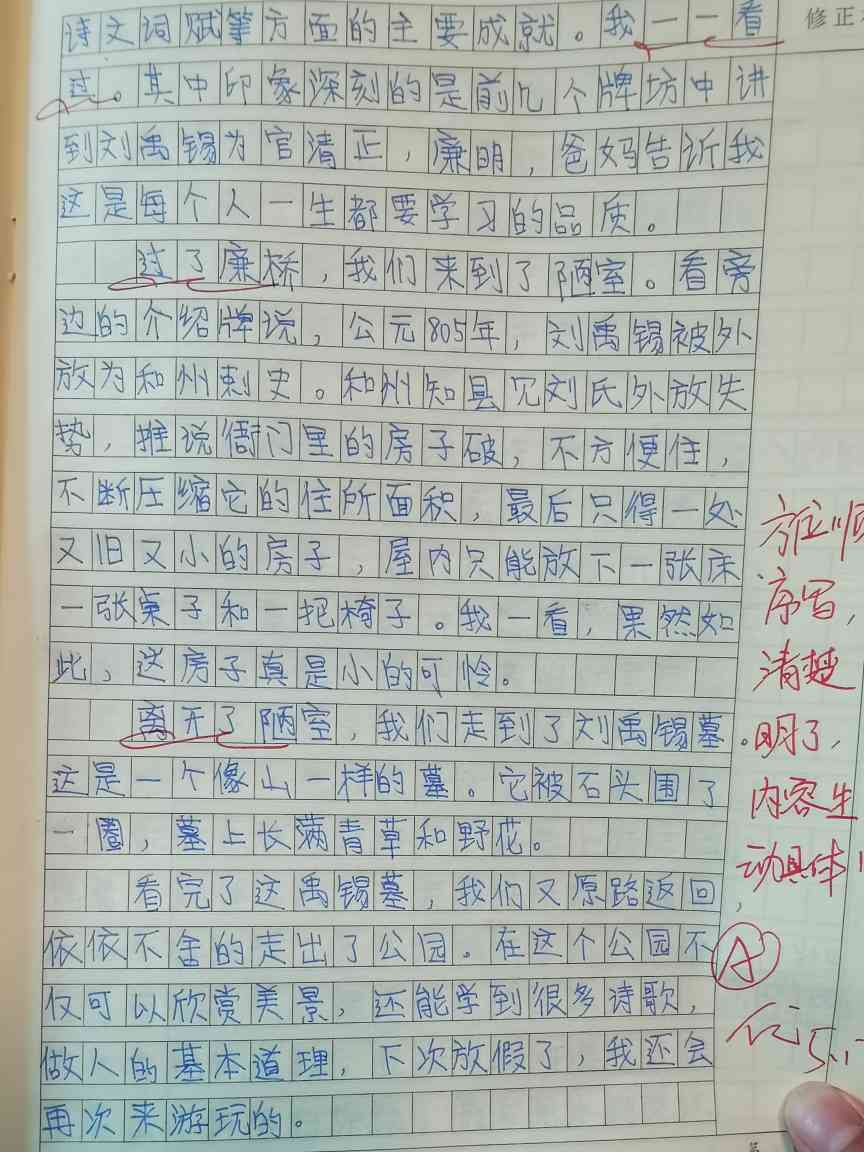 诗文词赋等方面的主要成就。我一一看
过。其中印象深刻的是前几个牌坊中讲
到刘禹锡为官清正，廉明，爸妈告诉我
这是每个人一生都要学习的品质。
过了廉桥，我们来到了陋室。看旁
边的介绍牌说，公元805年，刘禹锡被外
放为和州刺史。和州知县见刘氏外放失
势，推说衙门里的房子破，不方便住，
不断压缩它的住所面积，最后只得一处
又旧又小的房子，屋内只能放下一张床
一张桌子和一把椅子。我一看，果然如
此，这房子真是小的可怜。
离开了陋室，我们走到了刘禹锡墓。
这是一个像山一样的墓。它被石头围了
一圈，墓上长满青草和野花。
看完了这禹锡墓，我们又原路返回，
依依不舍的走出了公园。在这个公园不
仅可以欣赏美景，还能学到很多诗歌，
做人的基本道理，下次放假了，我还会
再次来游玩的。
修正
方位顺
序写，
清楚
明了，
内容生
动具体！
A